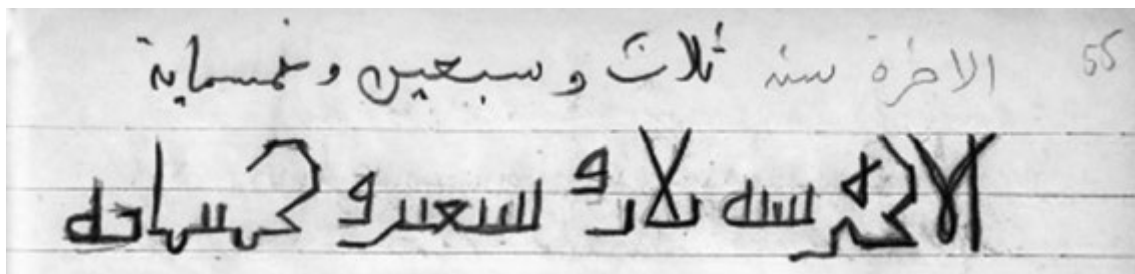 55 الاخرة سنة ثلاث وسبعين وخمسماية
الاخرة سنه ثلاث وسبعين وخمسمايه